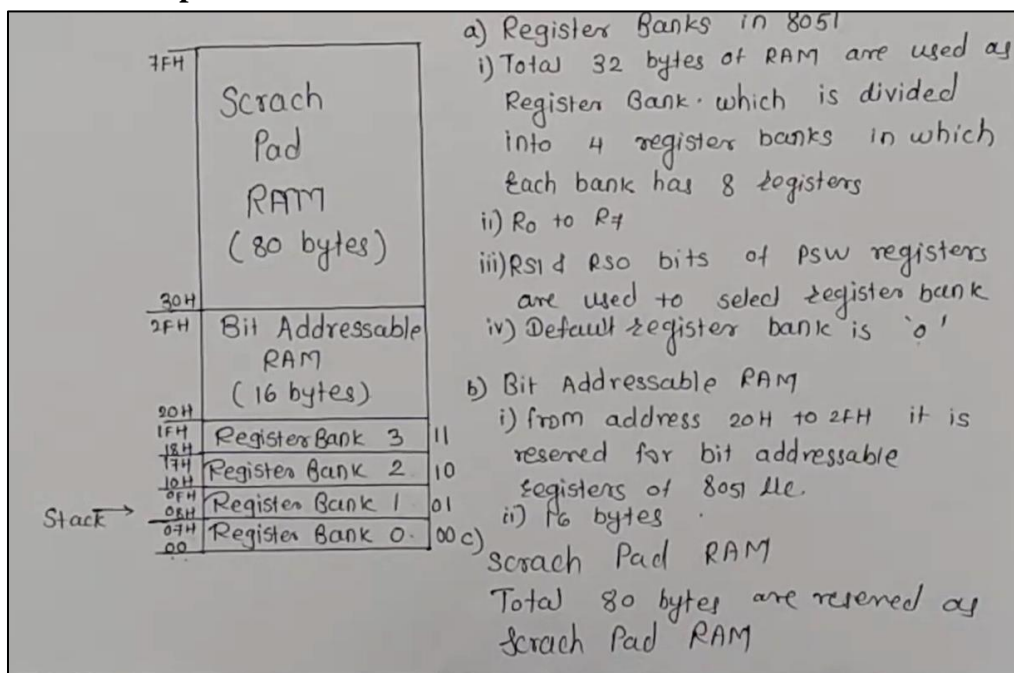 7FH
Scrach
Pad
RAM
(80 bytes)
30H
2FH
Bit Addressable
RAM
(16 bytes)
20H
1FH
18H
Register Bank 3 11
17H
10H
Register Bank 2 10
0FH
08H
Register Bank 1 01
Stack
07H
00
Register Bank 0. 00
a) Register Banks in 8051
i) Total 32 bytes of RAM are used as
Register Bank. which is divided
into 4 register banks in which
Each bank has 8 registers
ii) R0 to R7
iii) RS1 & RS0 bits of PSW registers
are used to select register bank
iv) Default register bank is '0'
b) Bit Addressable RAM
i) from address 20H to 2FH it is
reserved for bit addressable
registers of 8051 μc.
ii) 16 bytes .
c)
Scrach Pad RAM
Total 80 bytes are reserved as
Scrach Pad RAM